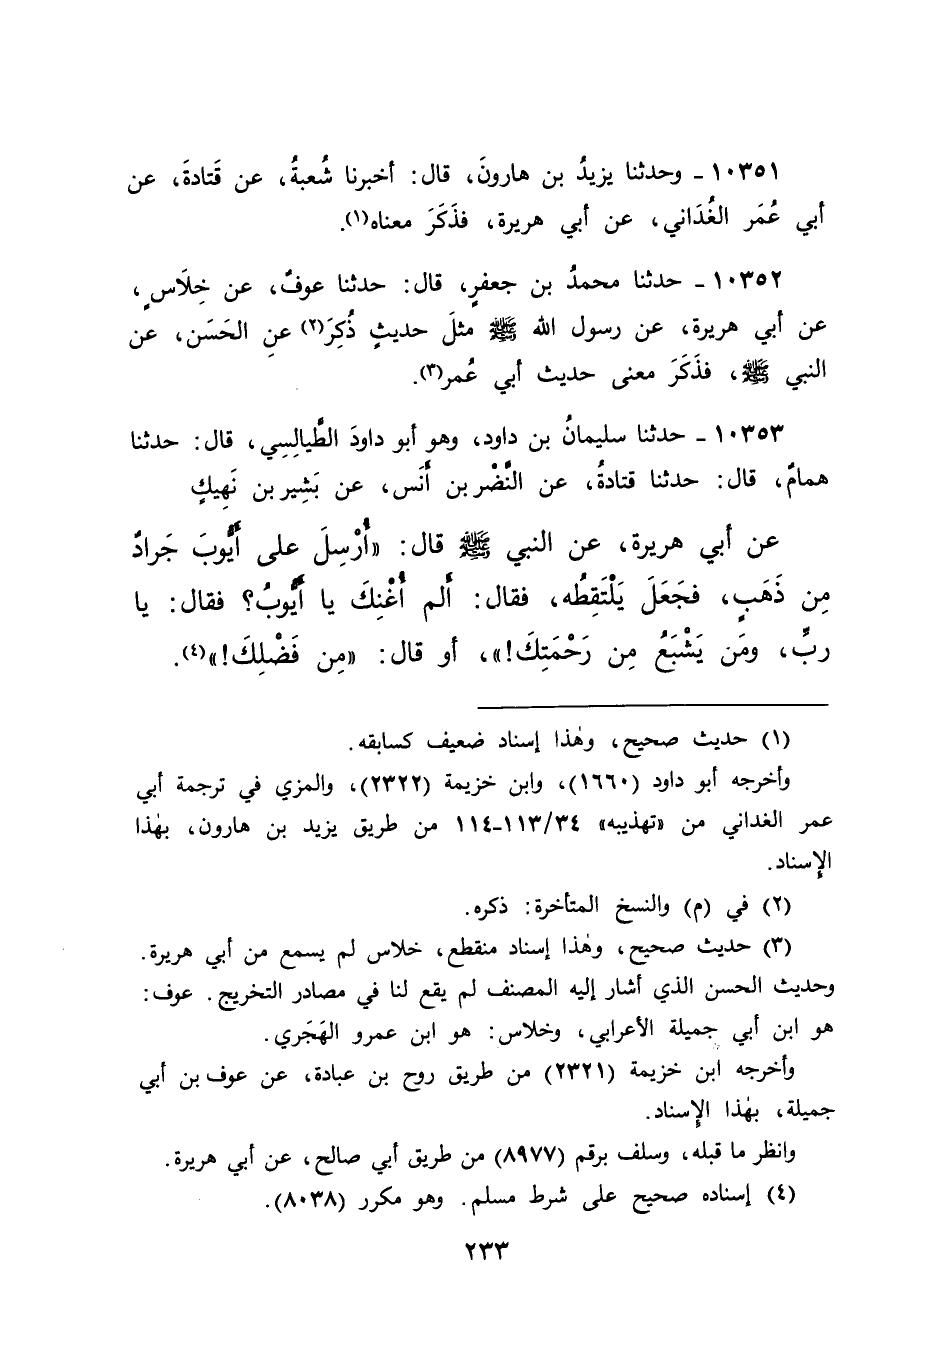 ١٠٣٥١ ـ وحدثنا يزيدُ بن هارونَ، قال: أخبرنا شُعبةُ، عن قَتادةَ، عن
أبي عُمَر الغُدَاني، عن أبي هريرة، فذَكَرَ معناه(١).
١٠٣٥٢ ـ حدثنا محمدُ بن جعفرٍ، قال: حدثنا عوفٌ، عن خِلَاسٍ،
عن أبي هريرة، عن رسول الله ﷺ مثلَ حديثٍ ذُكِرَ(٢) عنِ الحَسَن، عن
النبي ﷺ، فذَكَرَ معنى حديث أبي عُمر(٣).
١٠٣٥٣ ـ حدثنا سليمانُ بن داود، وهو أبو داودَ الطَّيالِسِي، قال: حدثنا
همامٌ، قال: حدثنا قتادةُ، عن النَّضْر بن أَنَس، عن بَشِير بن نَهِيكٍ
عن أبي هريرة، عن النبي ﷺ قال: «أُرْسِلَ على أَيُّوبَ جَرادٌ
مِن ذَهَبٍ، فجَعَلَ يَلْتَقِطُه، فقال: أَلم أُغْنِكَ يا أَيُّوبُ؟ فقال: يا
ربِّ، ومَن يَشْبَعُ مِن رَحْمَتِكَ!»، أو قال: «مِن فَضْلِكَ!»(٤).
(١) حديث صحيح، وهٰذا إسناد ضعيف كسابقه.
وأخرجه أبو داود (١٦٦٠)، وابن خزيمة (٢٣٢٢)، والمزي في ترجمة أبي
عمر الغداني من «تهذيبه» ٣٤/١١٣-١١٤ من طريق يزيد بن هارون، بهٰذا
الإسناد.
(٢) في (م) والنسخ المتأخرة: ذكره.
(٣) حديث صحيح، وهٰذا إسناد منقطع، خلاس لم يسمع من أبي هريرة.
وحديث الحسن الذي أشار إليه المصنف لم يقع لنا في مصادر التخريج. عوف:
هو ابن أبي جميلة الأعرابي، وخلاس: هو ابن عمرو الهَجَري.
وأخرجه ابن خزيمة (٢٣٢١) من طريق روح بن عبادة، عن عوف بن أبي
جميلة، بهٰذا الإسناد.
وانظر ما قبله، وسلف برقم (٨٩٧٧) من طريق أبي صالح، عن أبي هريرة.
(٤) إسناده صحيح على شرط مسلم. وهو مكرر (٨٠٣٨).
٢٣٣